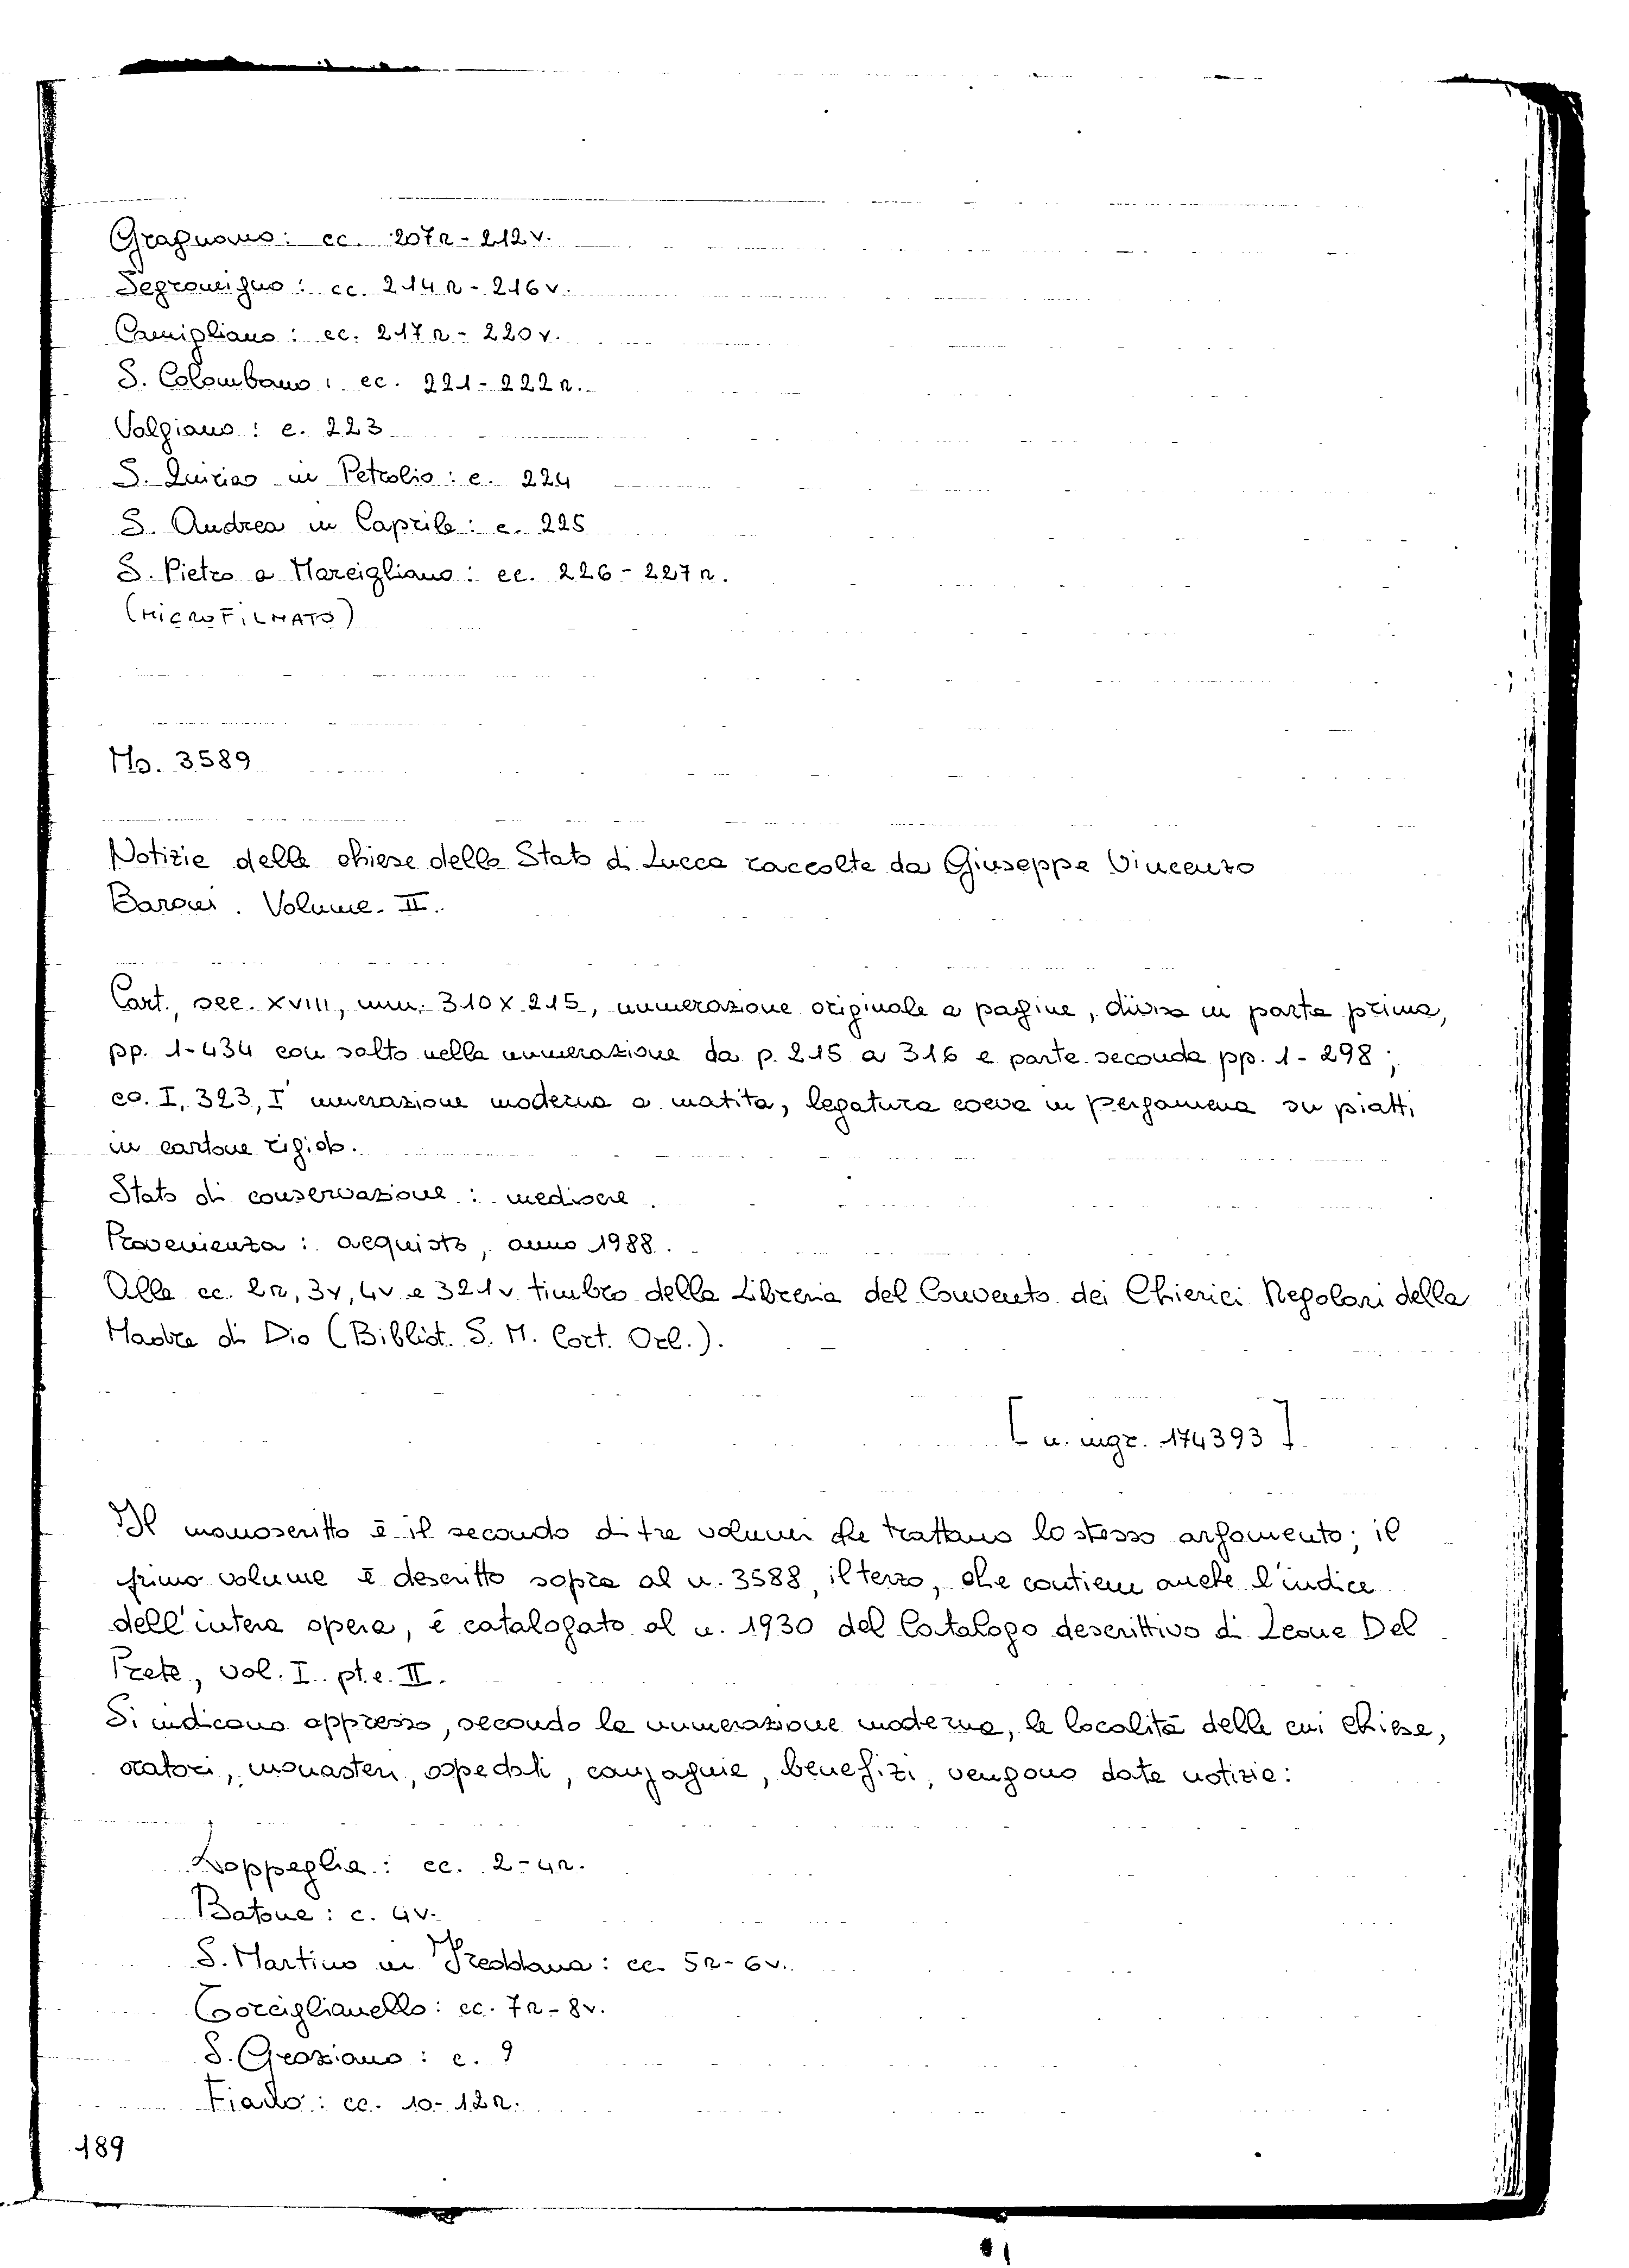 Gragnano: cc. 207r - 212v.
Segromigno: cc. 214r - 216v.
Camigliano: cc. 217r - 220v.
S. Colombano: cc. 221 - 222r.
Valgiano: c. 223
S. Quirico in Petrolio: c. 224
S. Andrea in Caprile: c. 225
S. Pietro a Marcigliano: cc. 226 - 227r.
(MICROFILMATO)
Ms. 3589
Notizie delle chiese dello Stato di Lucca raccolte da Giuseppe Vincenzo
Baroni. Volume II.
Cart., sec. XVIII, mm. 310 x 215, numerazione originale a pagine, divisa in parte prima,
pp. 1-434 con salto nella numerazione da p. 215 a 316 e parte seconda pp. 1 - 298;
cc. I, 323, I' numerazione moderna a matita, legatura coeva in pergamena su piatti
in cartone rigido.
Stato di conservazione: mediocre.
Provenienza: acquisto, anno 1988.
Alle cc. 2r, 3v, 4v e 321v timbro della Libreria del Convento dei Chierici Regolari della
Madre di Dio (Bibliot. S. M. Cort. Orl.).
[n. ingr. 174393]
Il manoscritto è il secondo di tre volumi che trattano lo stesso argomento; il
primo volume è descritto sopra al n. 3588, il terzo, che contiene anche l'indice
dell'intera opera, è catalogato al n. 1930 del Catalogo descrittivo di Leone Del
Prete, vol. I. pt.e. II.
Si indicano appresso, secondo la numerazione moderna, le località delle cui chiese,
oratori, monasteri, ospedali, compagnie, benefizi, vengono date notizie:
Loppeglia: cc. 2 - 4r.
Batone: c. 4v.
S. Martino in Freddana: cc. 5r - 6v.
Torciglianello: cc. 7r - 8v.
S. Graziano: c. 9
Fiano: cc. 10 - 12r.
189